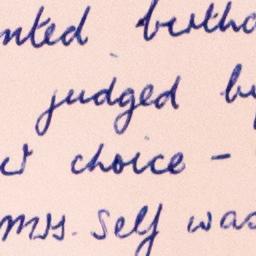 nted birthd
judged by
choice -
Mrs. Self was